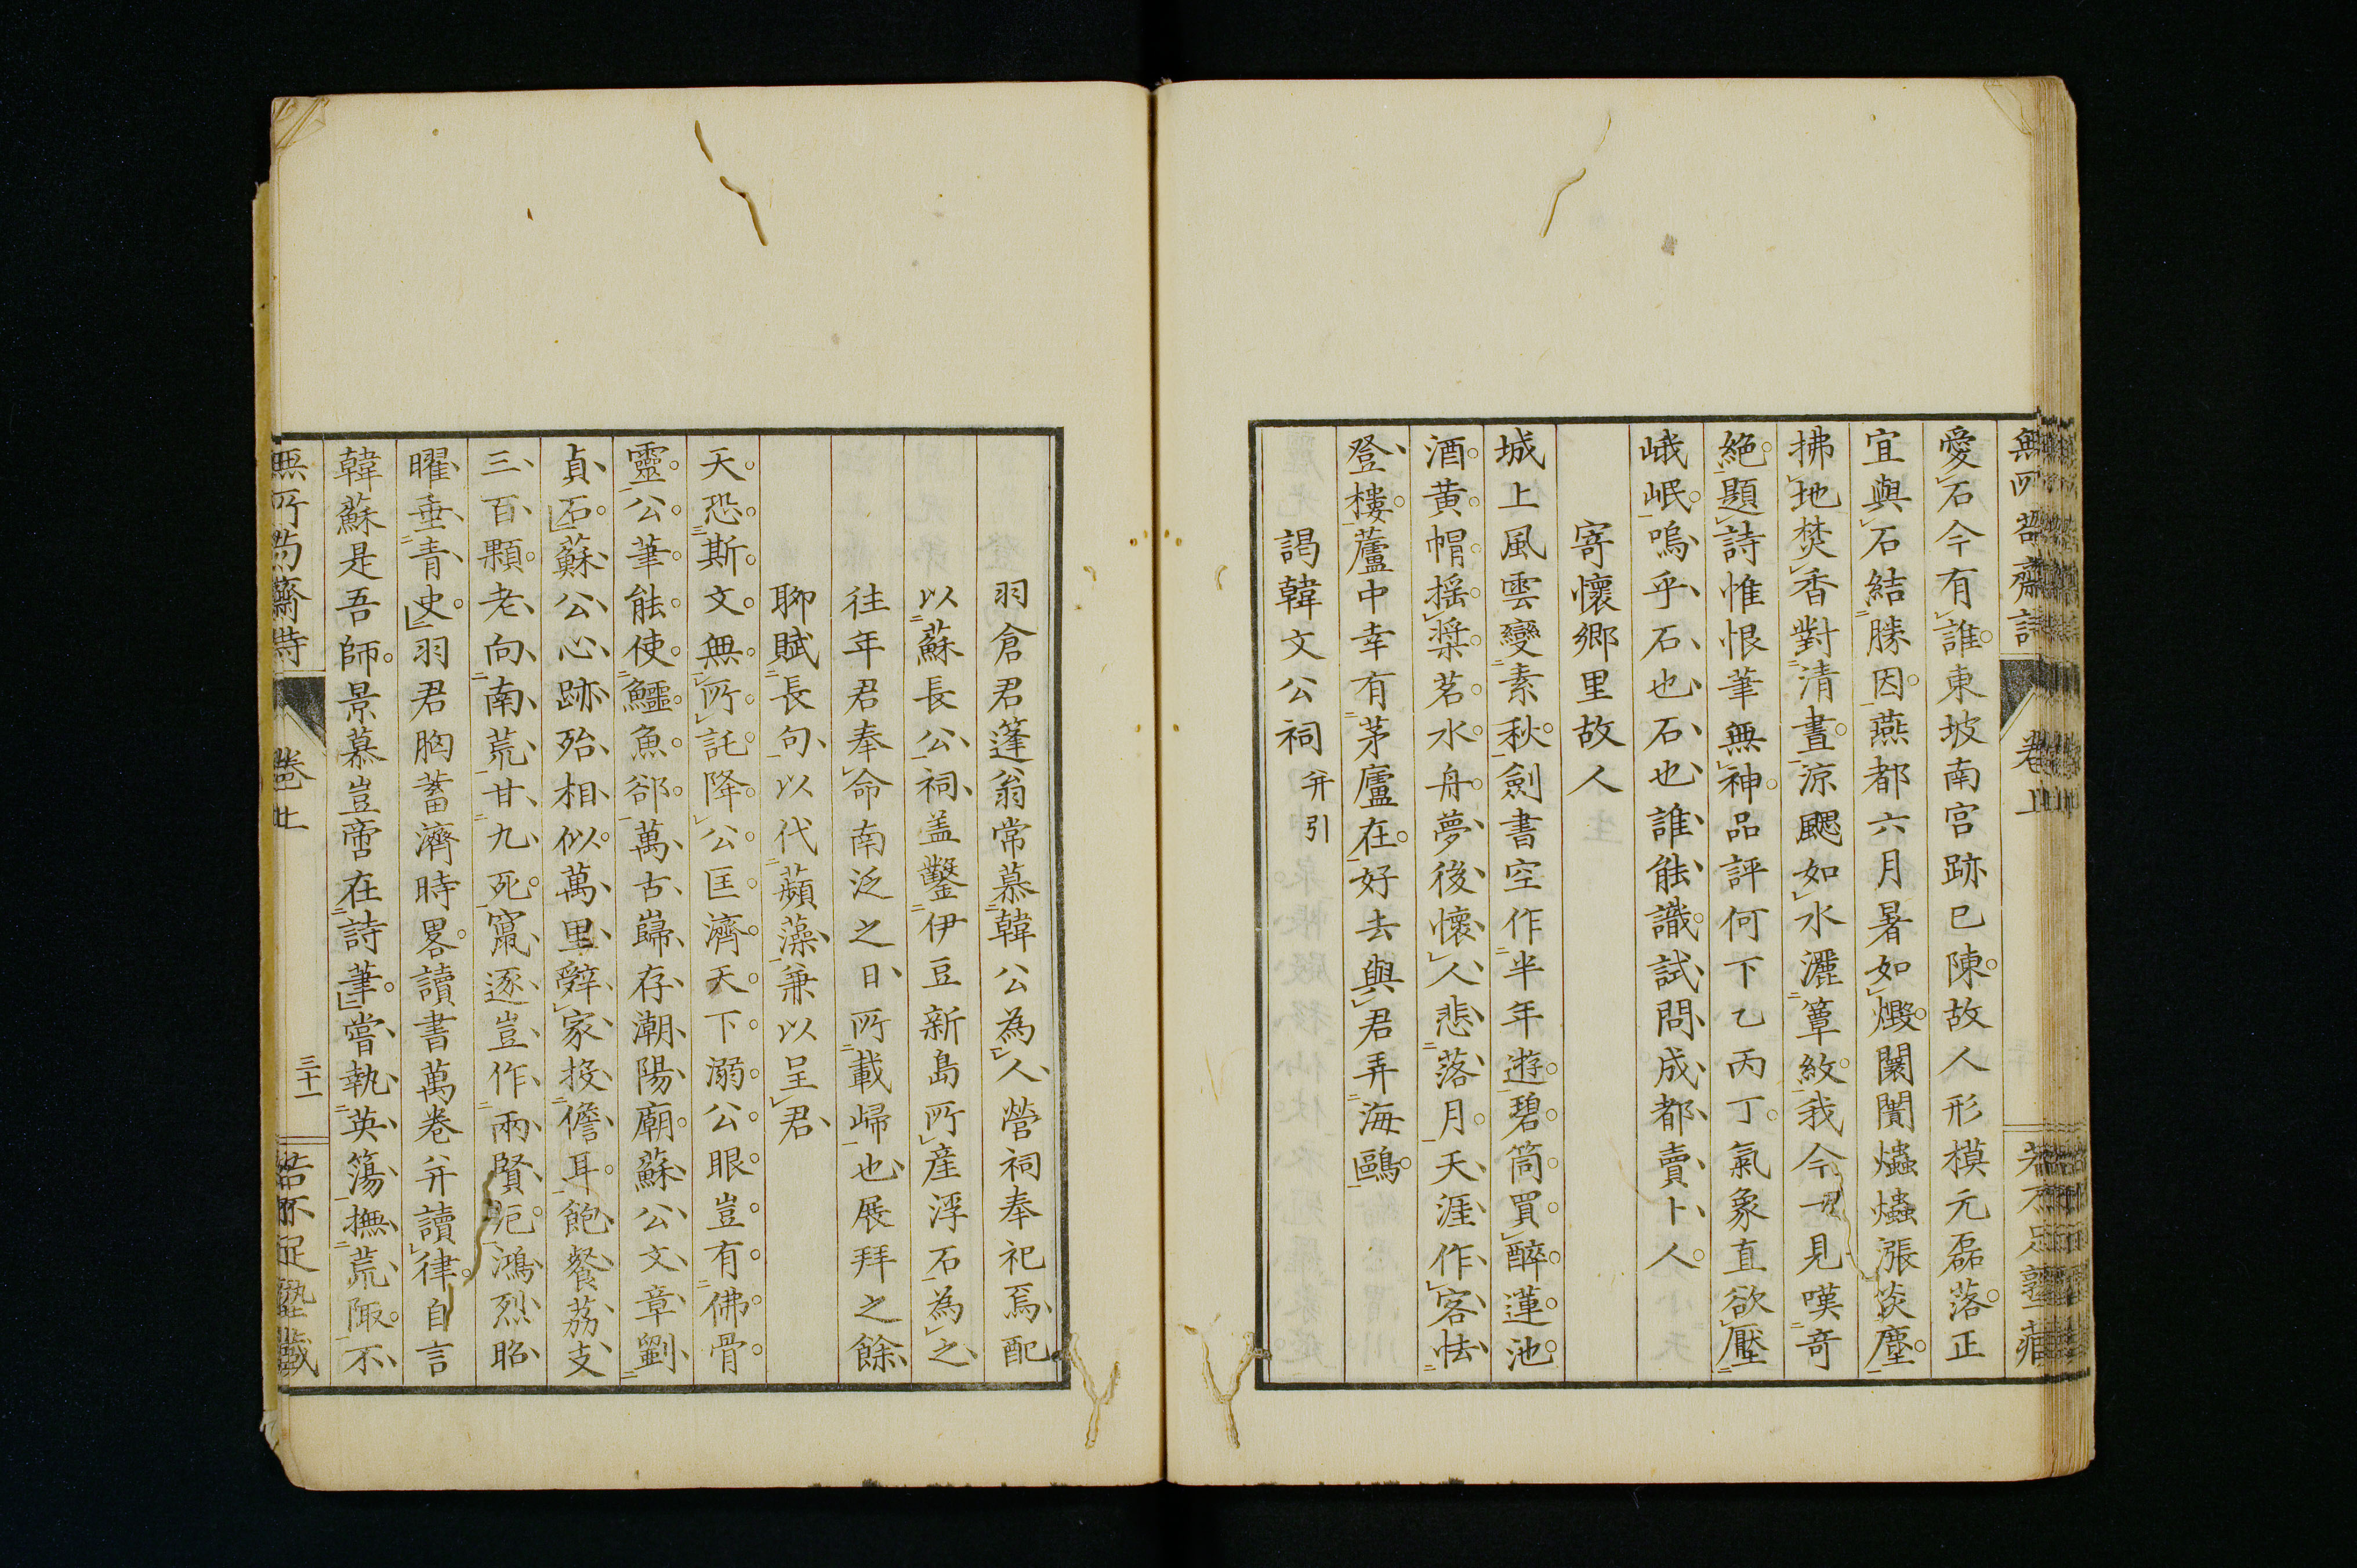 無所苟齋詩 卷上
愛石今有誰東坡南宮跡已陳故人形模元磊落正
宜與石結勝因燕都六月暑如燬闤闠爞爞漲炎塵
拂地焚香對清晝涼颸如水灑簟紋我今一見嘆奇
絶題詩惟恨筆無神品評何下乙丙丁氣象直欲壓
峨岷嗚乎石也石也誰能識試問成都賣卜人
寄懷鄉里故人
城上風雲變素秋劍書空作半年遊碧筒買醉蓮池
酒黄帽揺槳茗水舟夢後懷人悲落月天涯作客怯
登樓蘆中幸有茅廬在好去與君弄海鷗
謁韓文公祠 并引
羽倉君蓬翁常慕韓公為人營祠奉祀焉配
以蘇長公祠盖鑿伊豆新島所産浮石為之
徃年君奉命南泛之日所載歸也展拜之餘
聊賦長句以代蘋藻兼以呈君
天恐斯文無所託降公匡濟天下溺公眼豈有佛骨
靈公筆能使鱷魚郤萬古巋存潮陽廟蘇公文章劉
貞石蘇公心跡殆相似萬里辭家投儋耳飽餐荔支
三百顆老向南荒甘九死竄逐豈作兩賢厄鴻烈昭
曜垂青史羽君胸蓄濟時畧讀書萬卷并讀律自言
韓蘇是吾師景慕豈啻在詩筆嘗執英簜撫荒陬不
無所苟齋詩 卷上 三十一 若不足塾藏